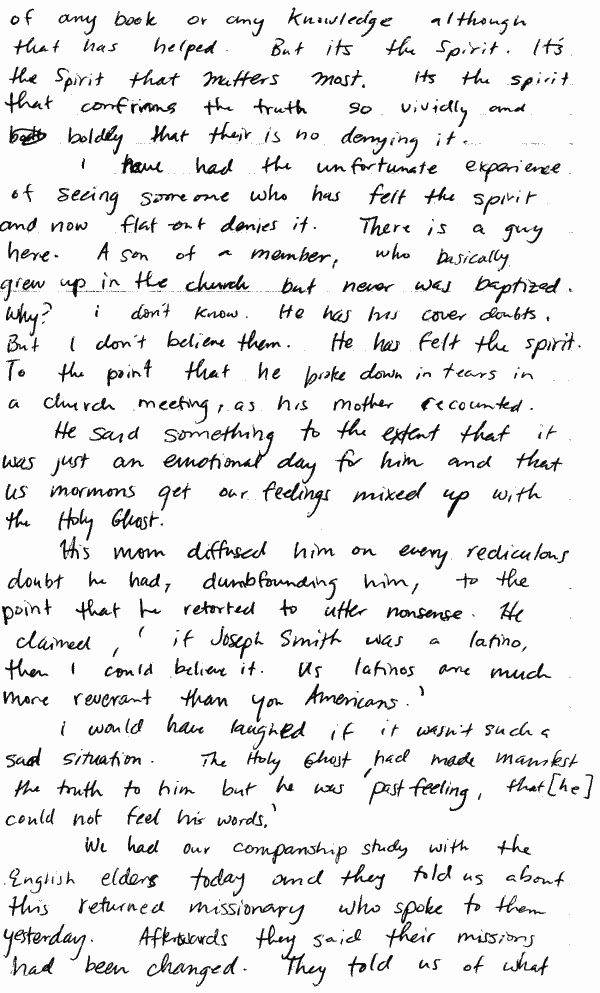 of any book or any knowledge although
that has helped. But its the Spirit. It's
the Spirit that matters most. Its the spirit
that confirms the truth so vividly and
boldly that their is no denying it.
I have had the unfortunate experience
of seeing someone who has felt the spirit
and now flat out denies it. There is a guy
here. A son of a member, who basically
grew up in the church but never was baptized.
Why? i don't know. He has his cover doubts.
But I don't believe them. He has felt the spirit.
To the point that he broke down in tears in
a church meeting, as his mother recounted.
He said something to the extent that it
was just an emotional day for him and that
us mormons get our feelings mixed up with
the Holy Ghost.
His mom diffused him on every rediculous
doubt he had, dumbfounding him, to the
point that he retorted to utter nonsense. He
claimed, 'if Joseph Smith was a latino,
then I could believe it. Us latinos are much
more reverant than you Americans.'
I would have laughed if it wasn't such a
sad situation. The Holy Ghost had made manifest
the truth to him but he was 'past feeling, that [he]
could not feel his words.'
We had our companship study with the
English elders today and they told us about
this returned missionary who spoke to them
yesterday. Afterwards they said their missions
had been changed. They told us of what